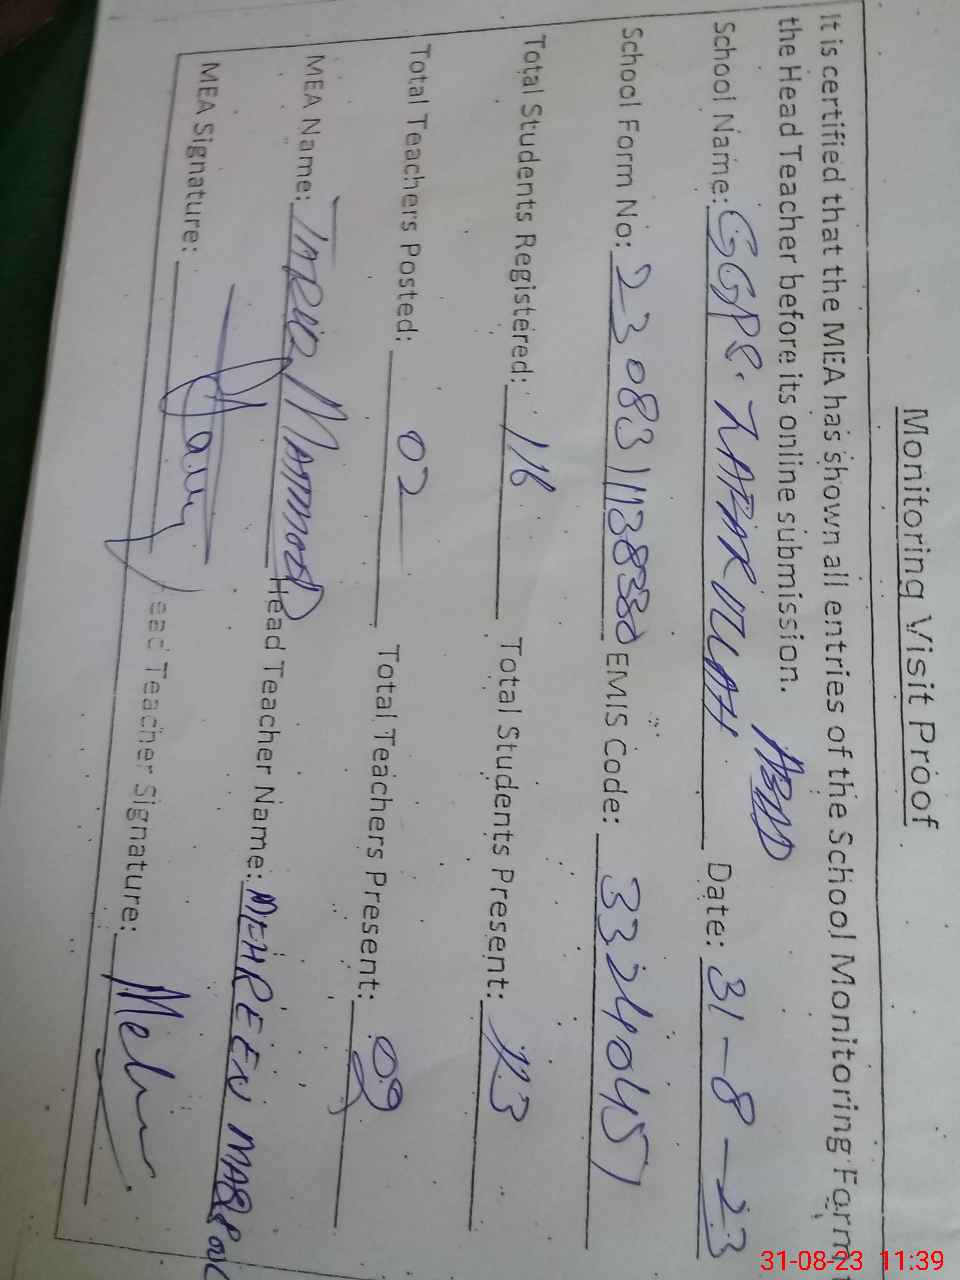 Monitoring Visit Proof
It is certified that the MEA has shown all entries of the School Monitoring Form
the Head Teacher before its online submission.
School Name: GGPS. ZAFAR ULLAH ABAD Date: 31-8-23
School Form No: 230831138380 EMIS Code: 33240451
Total Students Registered: 116 Total Students Present:
Total Teachers Posted: 02 Total Teachers Present:
MEA Name: TARIQ MAHMOOD Head Teacher Name: MEHREEN
MEA Signature: Head Teacher Signature:
31-08-23 11:39